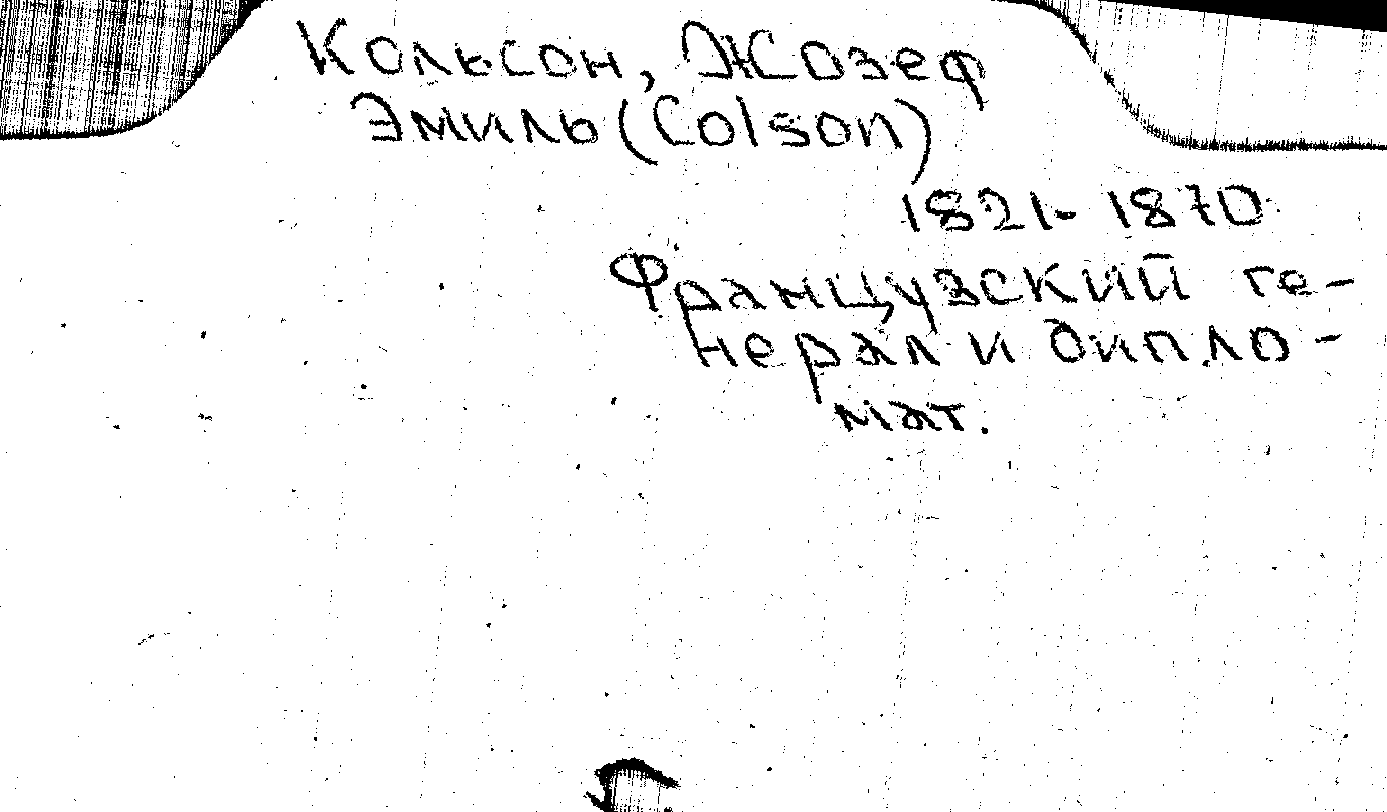 Кольсон, Жозеф
Эмиль (Colson)
1821-1870
Французский ге-
нерал и дипло-
мат.